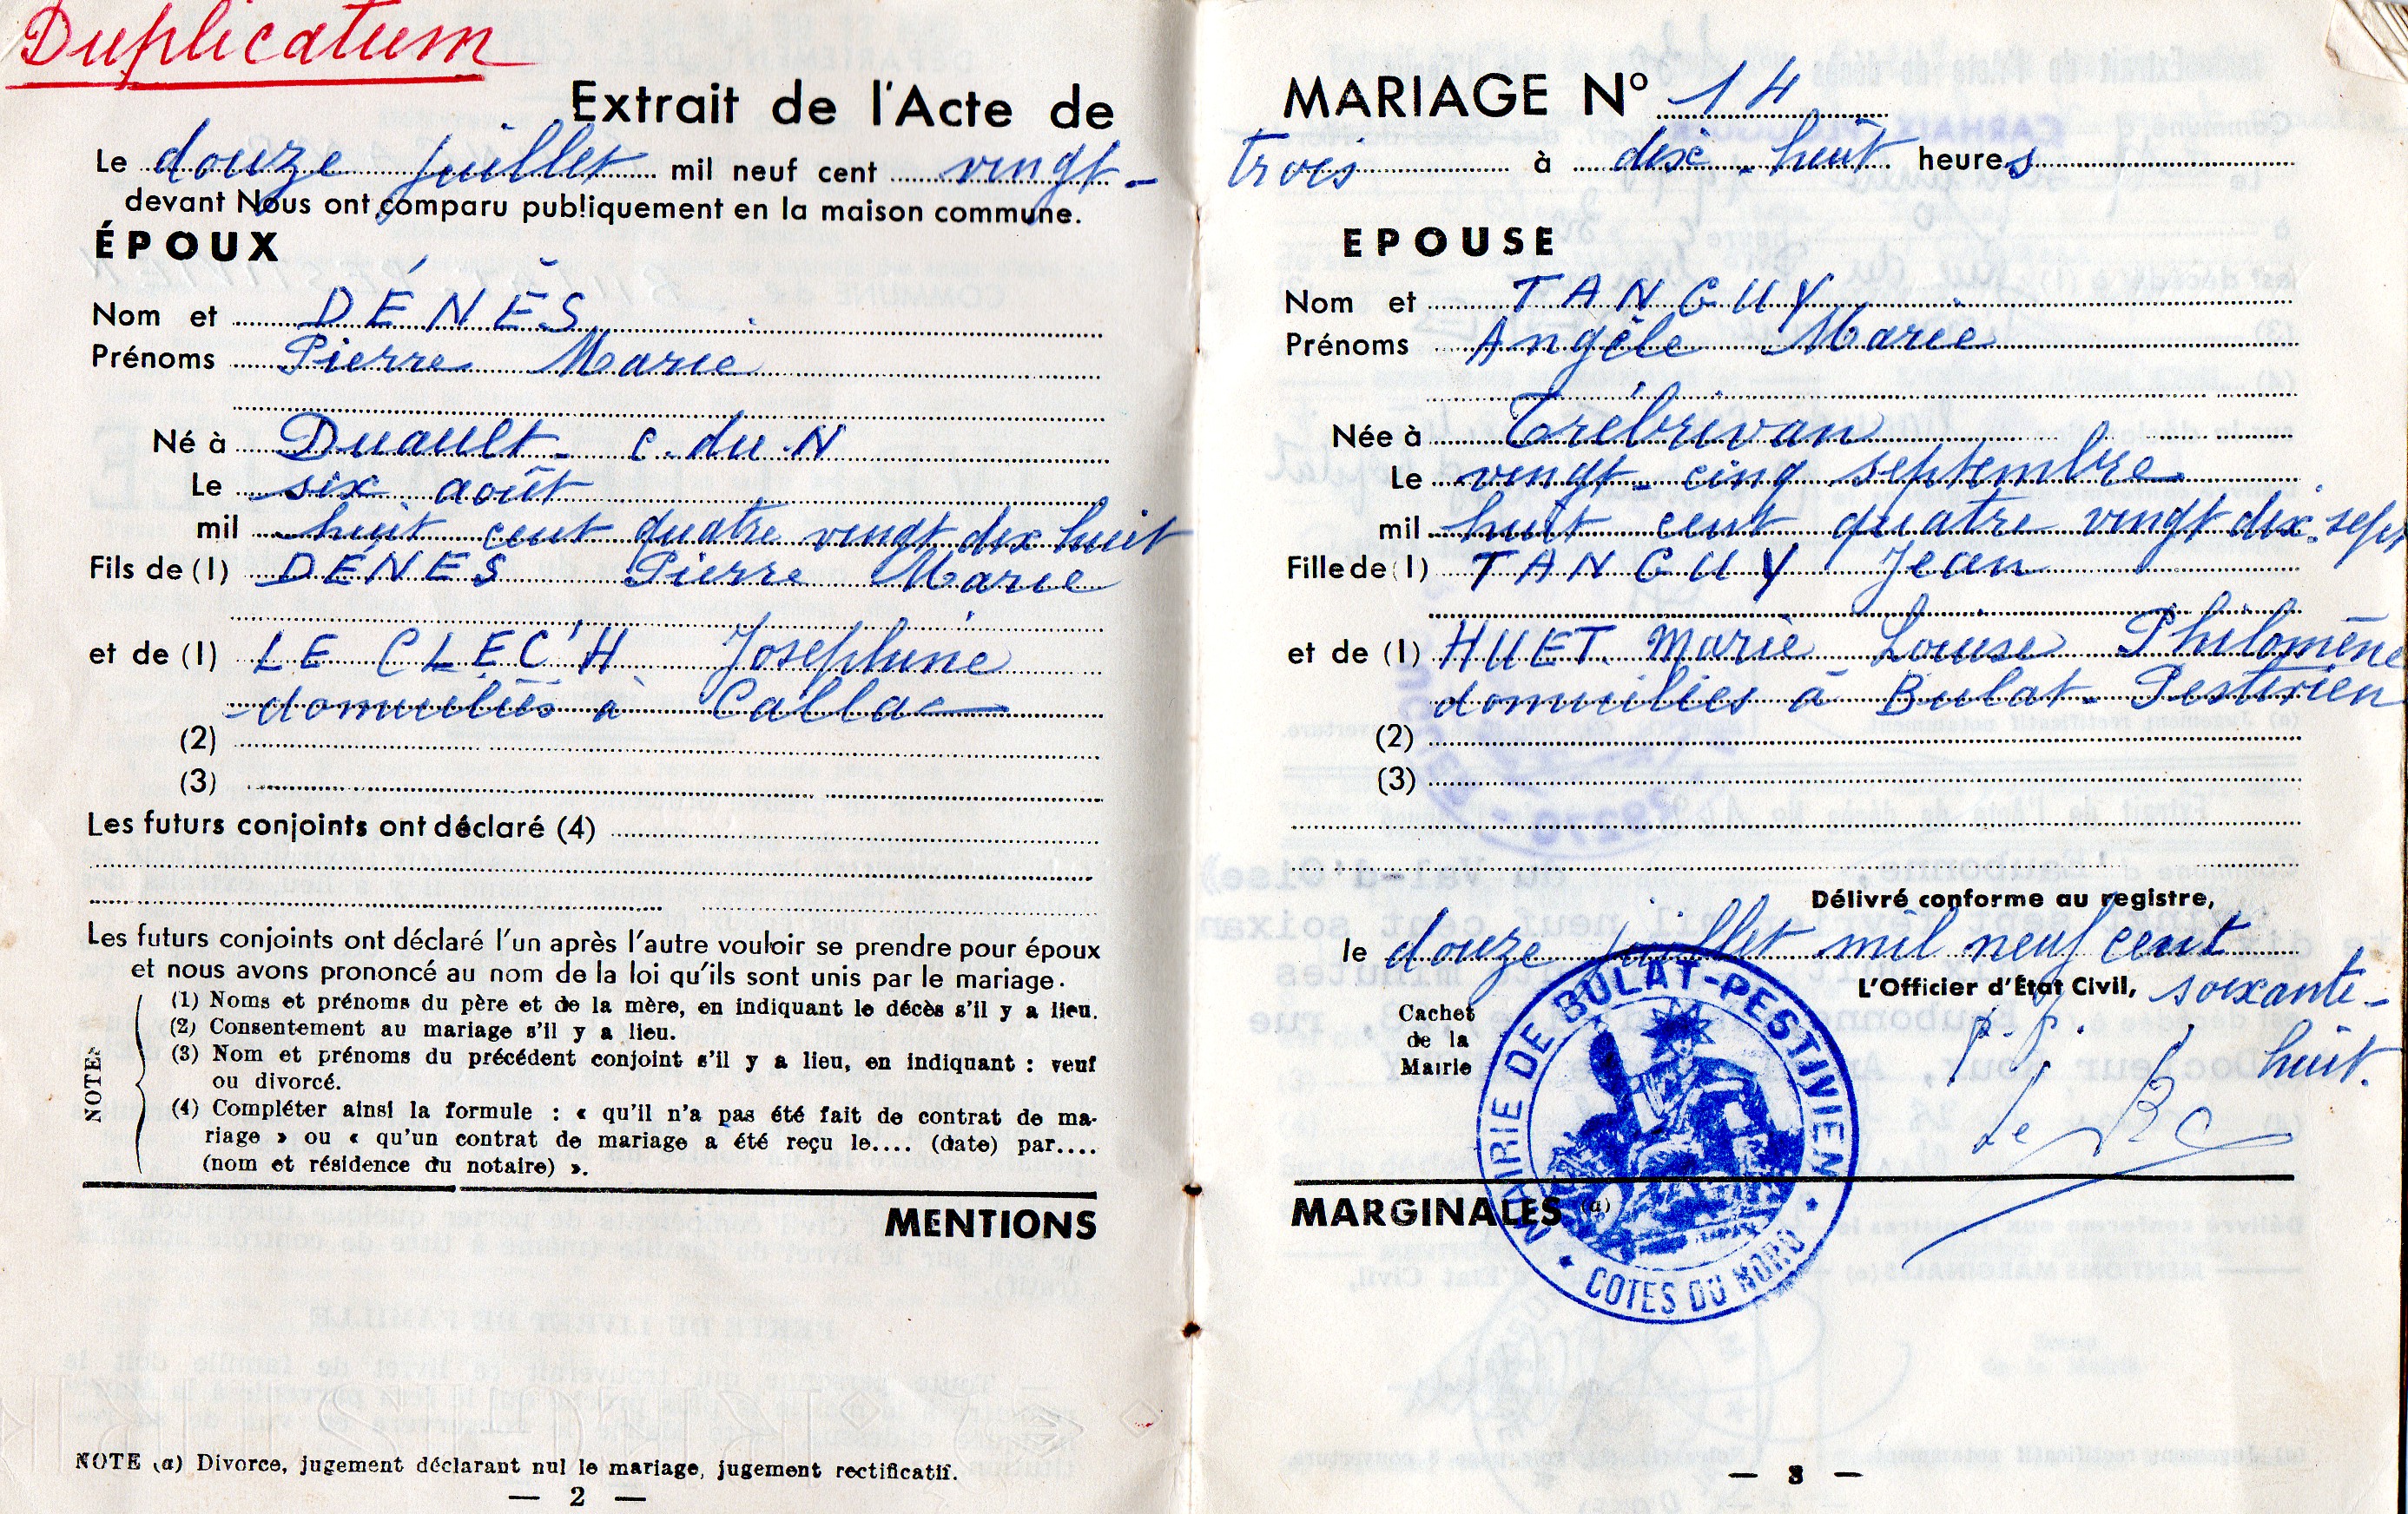 Duplicatum
Extrait de l'Acte de
Le douze juillet mil neuf cent vingt-
devant Nous ont comparu publiquement en la maison commune.
ÉPOUX
Nom et DÉNÈS
Prénoms Pierre Marie
Né à Duault - C. du N
Le six août
mil huit cent quatre vingt dix huit
Fils de (1) DÉNÈS Pierre Marie
et de (1) LE CLEC'H Joséphine
domiciliés à Callac
(2)
(3)
Les futurs conjoints ont déclaré (4)
Les futurs conjoints ont déclaré l'un après l'autre vouloir se prendre pour époux
et nous avons prononcé au nom de la loi qu'ils sont unis par le mariage.
NOTES
(1) Noms et prénoms du père et de la mère, en indiquant le décès s'il y a lieu.
(2) Consentement au mariage s'il y a lieu.
(3) Nom et prénoms du précédent conjoint s'il y a lieu, en indiquant : veuf
ou divorcé.
(4) Compléter ainsi la formule : « qu'il n'a pas été fait de contrat de ma-
riage » ou « qu'un contrat de mariage a été reçu le.... (date) par....
(nom et résidence du notaire) ».
MENTIONS
NOTE (a) Divorce, jugement déclarant nul le mariage, jugement rectificatif.
— 2 —
MARIAGE N° 14
trois à dix-huit heures
EPOUSE
Nom et TANGUY
Prénoms Angèle Marie
Née à Trébrivan
Le vingt-cinq septembre
mil huit cent quatre vingt dix-sept
Fille de (1) TANGUY Jean
et de (1) HUET Marie Louise Philomène
domiciliés à Bulat-Pestivien
(2)
(3)
Délivré conforme au registre,
le douze juillet mil neuf cent
L'Officier d'État Civil, soixante-
huit.
Cachet
de la
Mairie
MAIRIE DE BULAT-PESTIVIEN
COTES DU NORD
MARGINALES (a)
— 3 —